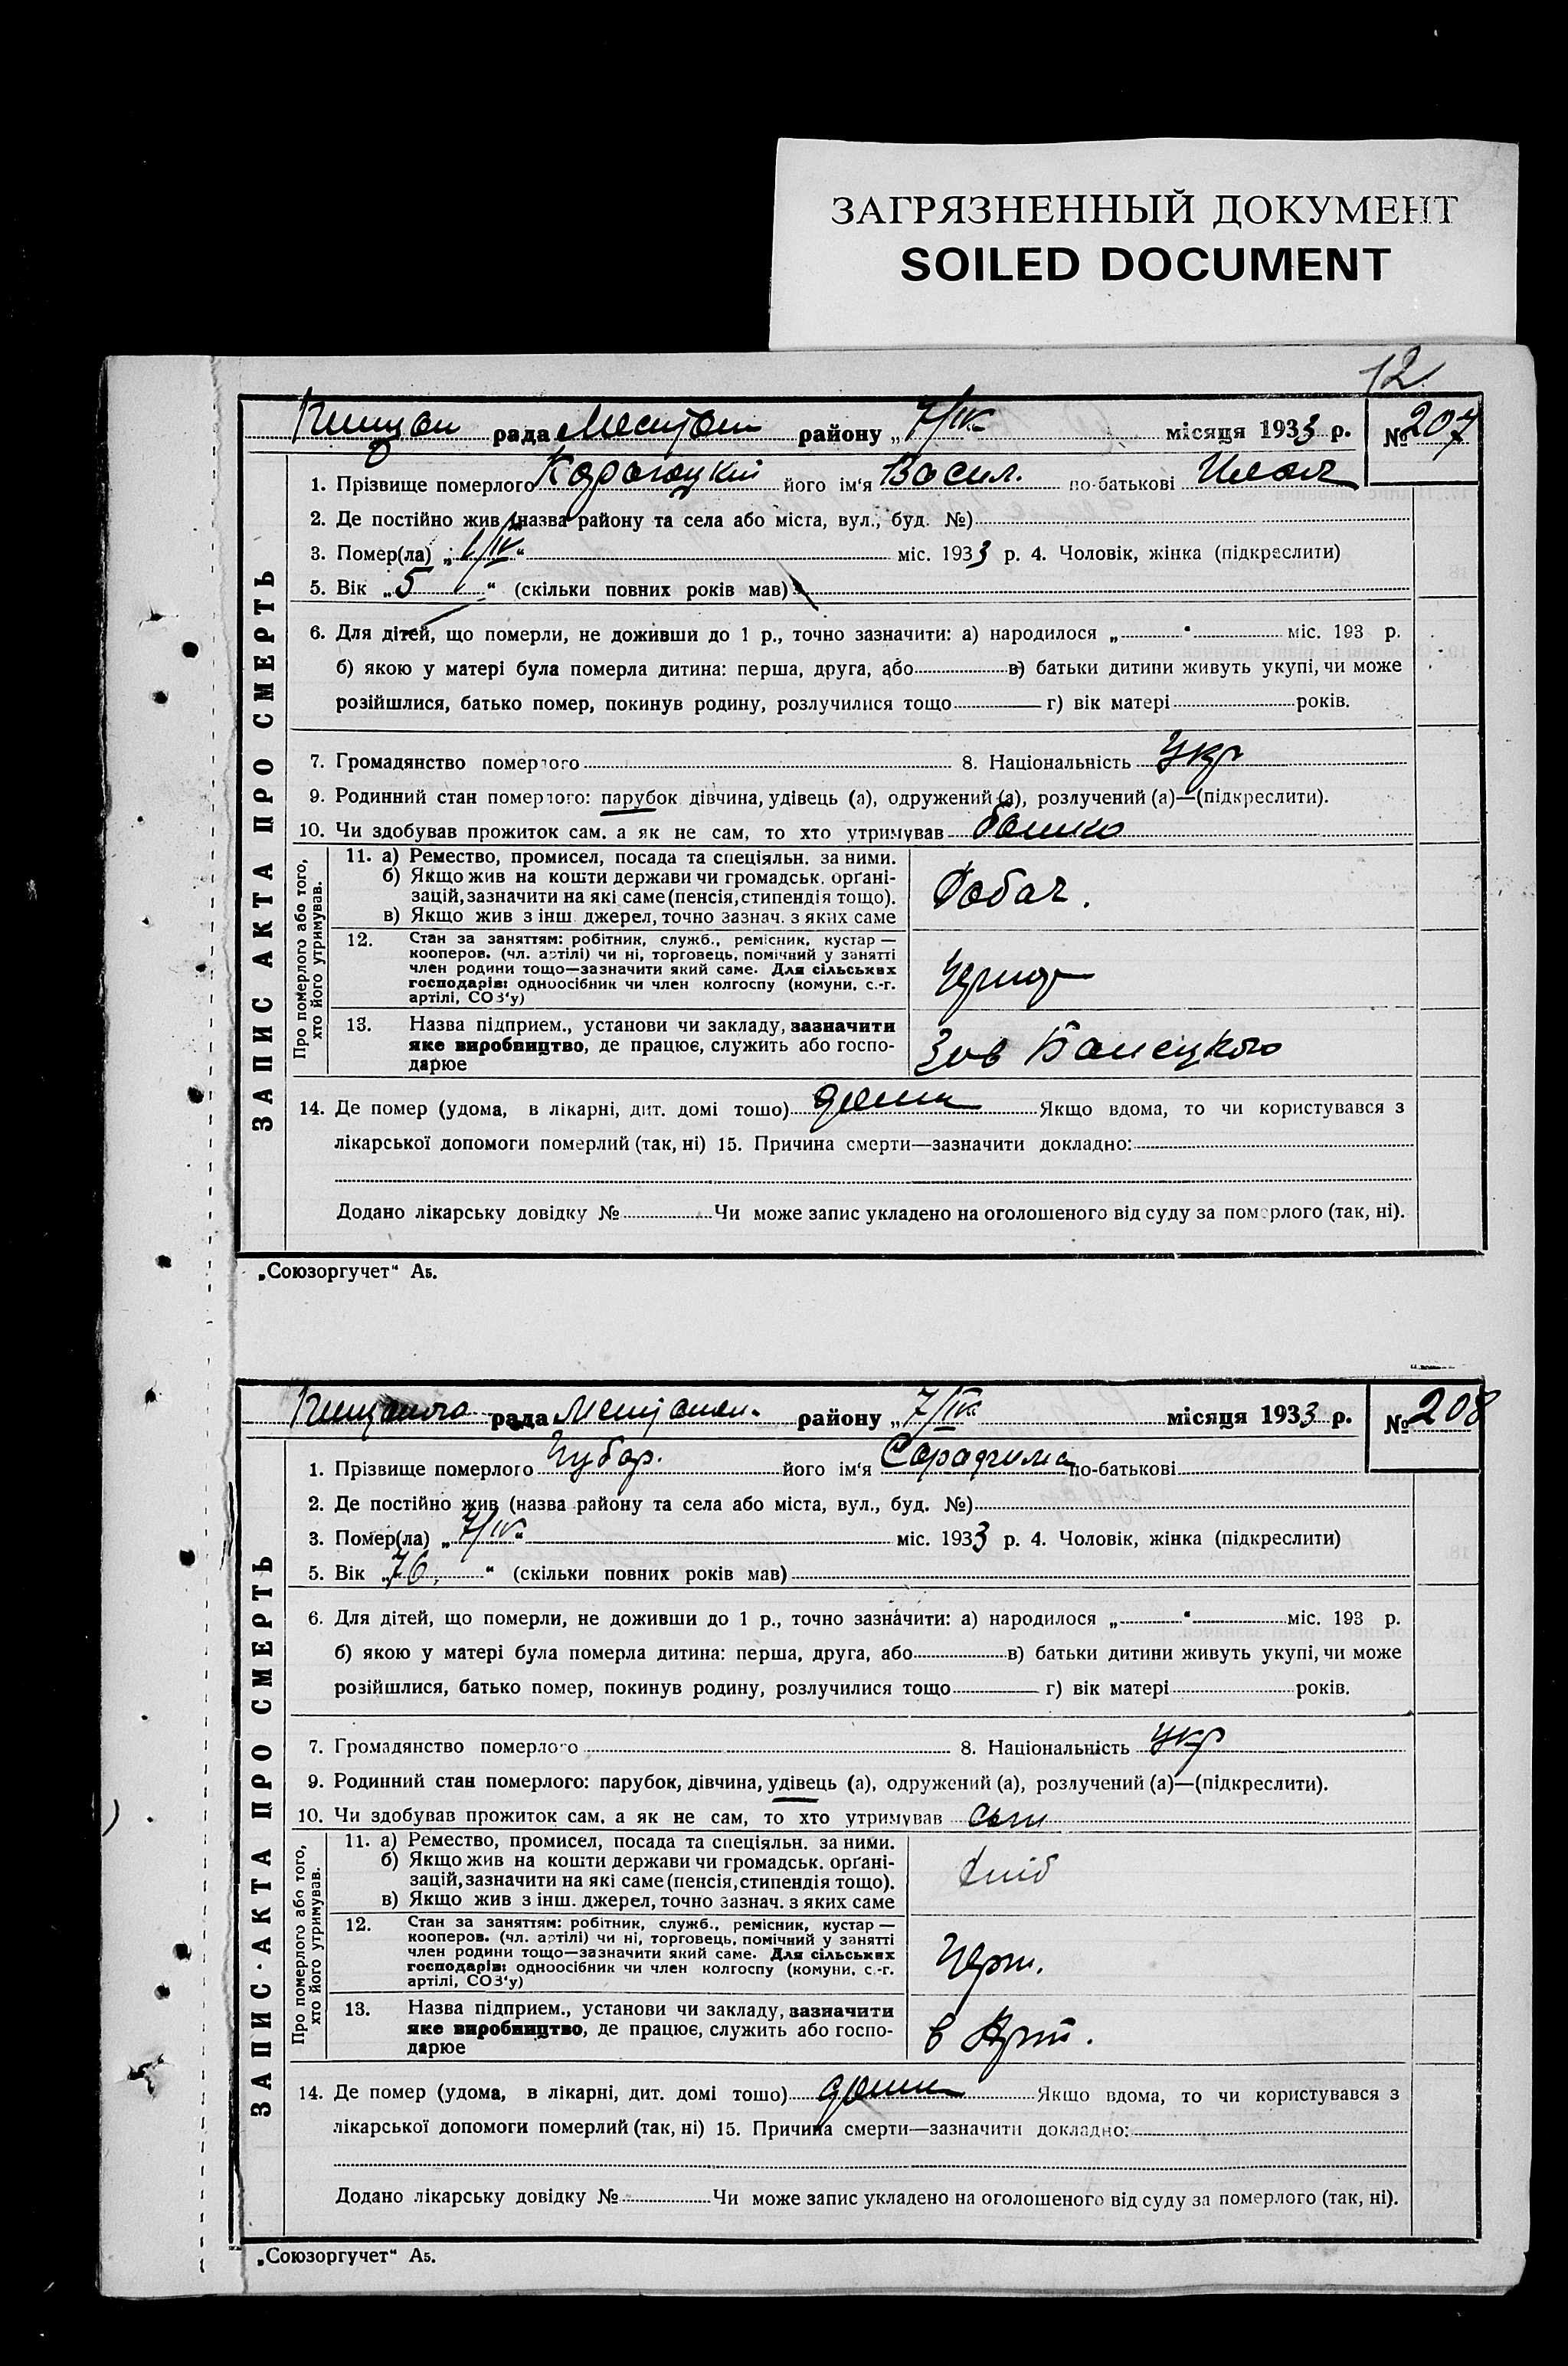 ЗАГРЯЗНЕННЫЙ ДОКУМЕНТ
SOILED DOCUMENT
12
рада району „7/IV“ місяця 1933 р. № 207
ЗАПИС АКТА ПРО СМЕРТЬ
1. Прізвище померлого його ім‘я Васил. по-батькові
2. Де постійно жив (назва району та села або міста, вул., буд. №)
3. Помер(ла) „ /IV“ міс. 1933 р. 4. Чоловік, жінка (підкреслити)
5. Вік „5“ (скільки повних років мав)
6. Для дітей, що померли, не доживши до 1 р., точно зазначити: а) народилося „ “ міс. 193 р.
б) якою у матері була померла дитина: перша, друга, або в) батьки дитини живуть укупі, чи може
розійшлися, батько помер, покинув родину, розлучилися тощо г) вік матері років.
7. Громадянство померлого 8. Національність Укр
9. Родинний стан померлого: парубок дівчина, удівець (а), одружений (а), розлучений (а)—(підкреслити).
10. Чи здобував прожиток сам. а як не сам, то хто утримував батько
Про померлого або того, хто його утримував.
11. а) Ремество, промисел, посада та спеціяльн. за ними.
б) Якщо жив на кошти держави чи громадськ. орґані-
зацій, зазначити на які саме (пенсія, стипендія тощо).
в) Якщо жив з інш. джерел, точно зазнач. з яких саме
12. Стан за заняттям: робітник, служб., ремісник, кустар—
кооперов. (чл. артілі) чи ні, торговець, помічний у занятті
член родини тощо—зазначити який саме. Для сільських
господарів: одноосібник чи член колгоспу (комуни, с.-г.
артілі, СОЗ‘у)
13. Назва підприєм., установи чи закладу, зазначити
яке виробництво, де працює, служить або госпо-
дарює
14. Де помер (удома, в лікарні, дит. домі тошо) дома Якщо вдома, то чи користувався з
лікарської допомоги померлий (так, ні) 15. Причина смерти—зазначити докладно:
Додано лікарську довідку № Чи може запис укладено на оголошеного від суду за померлого (так, ні).
„Союзоргучет“ А5.
рада району „7/IV“ місяця 1933 р. № 208
ЗАПИС АКТА ПРО СМЕРТЬ
1. Прізвище померлого Чубар. його ім‘я по-батькові
2. Де постійно жив (назва району та села або міста, вул., буд. №)
3. Помер(ла) „7/IV“ міс. 1933 р. 4. Чоловік, жінка (підкреслити)
5. Вік „76.“ (скільки повних років мав)
6. Для дітей, що померли, не доживши до 1 р., точно зазначити: а) народилося „ “ міс. 193 р.
б) якою у матері була померла дитина: перша, друга, або в) батьки дитини живуть укупі, чи може
розійшлися, батько помер, покинув родину, розлучилися тощо г) вік матері років.
7. Громадянство померлого 8. Національність Укр
9. Родинний стан померлого: парубок, дівчина, удівець (а), одружений (а), розлучений (а)—(підкреслити).
10. Чи здобував прожиток сам, а як не сам, то хто утримував
Про померлого або того, хто його утримував.
11. а) Ремество, промисел, посада та спеціяльн. за ними.
б) Якщо жив на кошти держави чи громадськ. орґані-
зацій, зазначити на які саме (пенсія, стипендія тощо).
в) Якщо жив з інш. джерел, точно зазнач. з яких саме
12. Стан за заняттям: робітник, служб., ремісник, кустар—
кооперов. (чл. артілі) чи ні, торговець, помічний у занятті
член родини тощо—зазначити який саме. Для сільських
господарів: одноосібник чи член колгоспу (комуни, с.-г.
артілі, СОЗ‘у)
13. Назва підприєм., установи чи закладу, зазначити
яке виробництво, де працює, служить або госпо-
дарює
14. Де помер (удома, в лікарні, дит. домі тошо) дома Якщо вдома, то чи користувався з
лікарської допомоги померлий (так, ні) 15. Причина смерти—зазначити докладно:
Додано лікарську довідку № Чи може запис укладено на оголошеного від суду за померлого (так, ні).
„Союзоргучет“ А5.